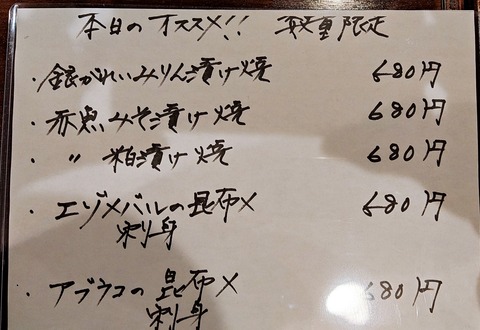 本日のオススメ!! 数量限定
・銀がれいみりん漬け焼 680円
・赤魚みそ漬け焼 680円
・〃 粕漬け焼 680円
・エゾメバルの昆布〆 680円
刺身
・アブラコの昆布〆 680円
刺身